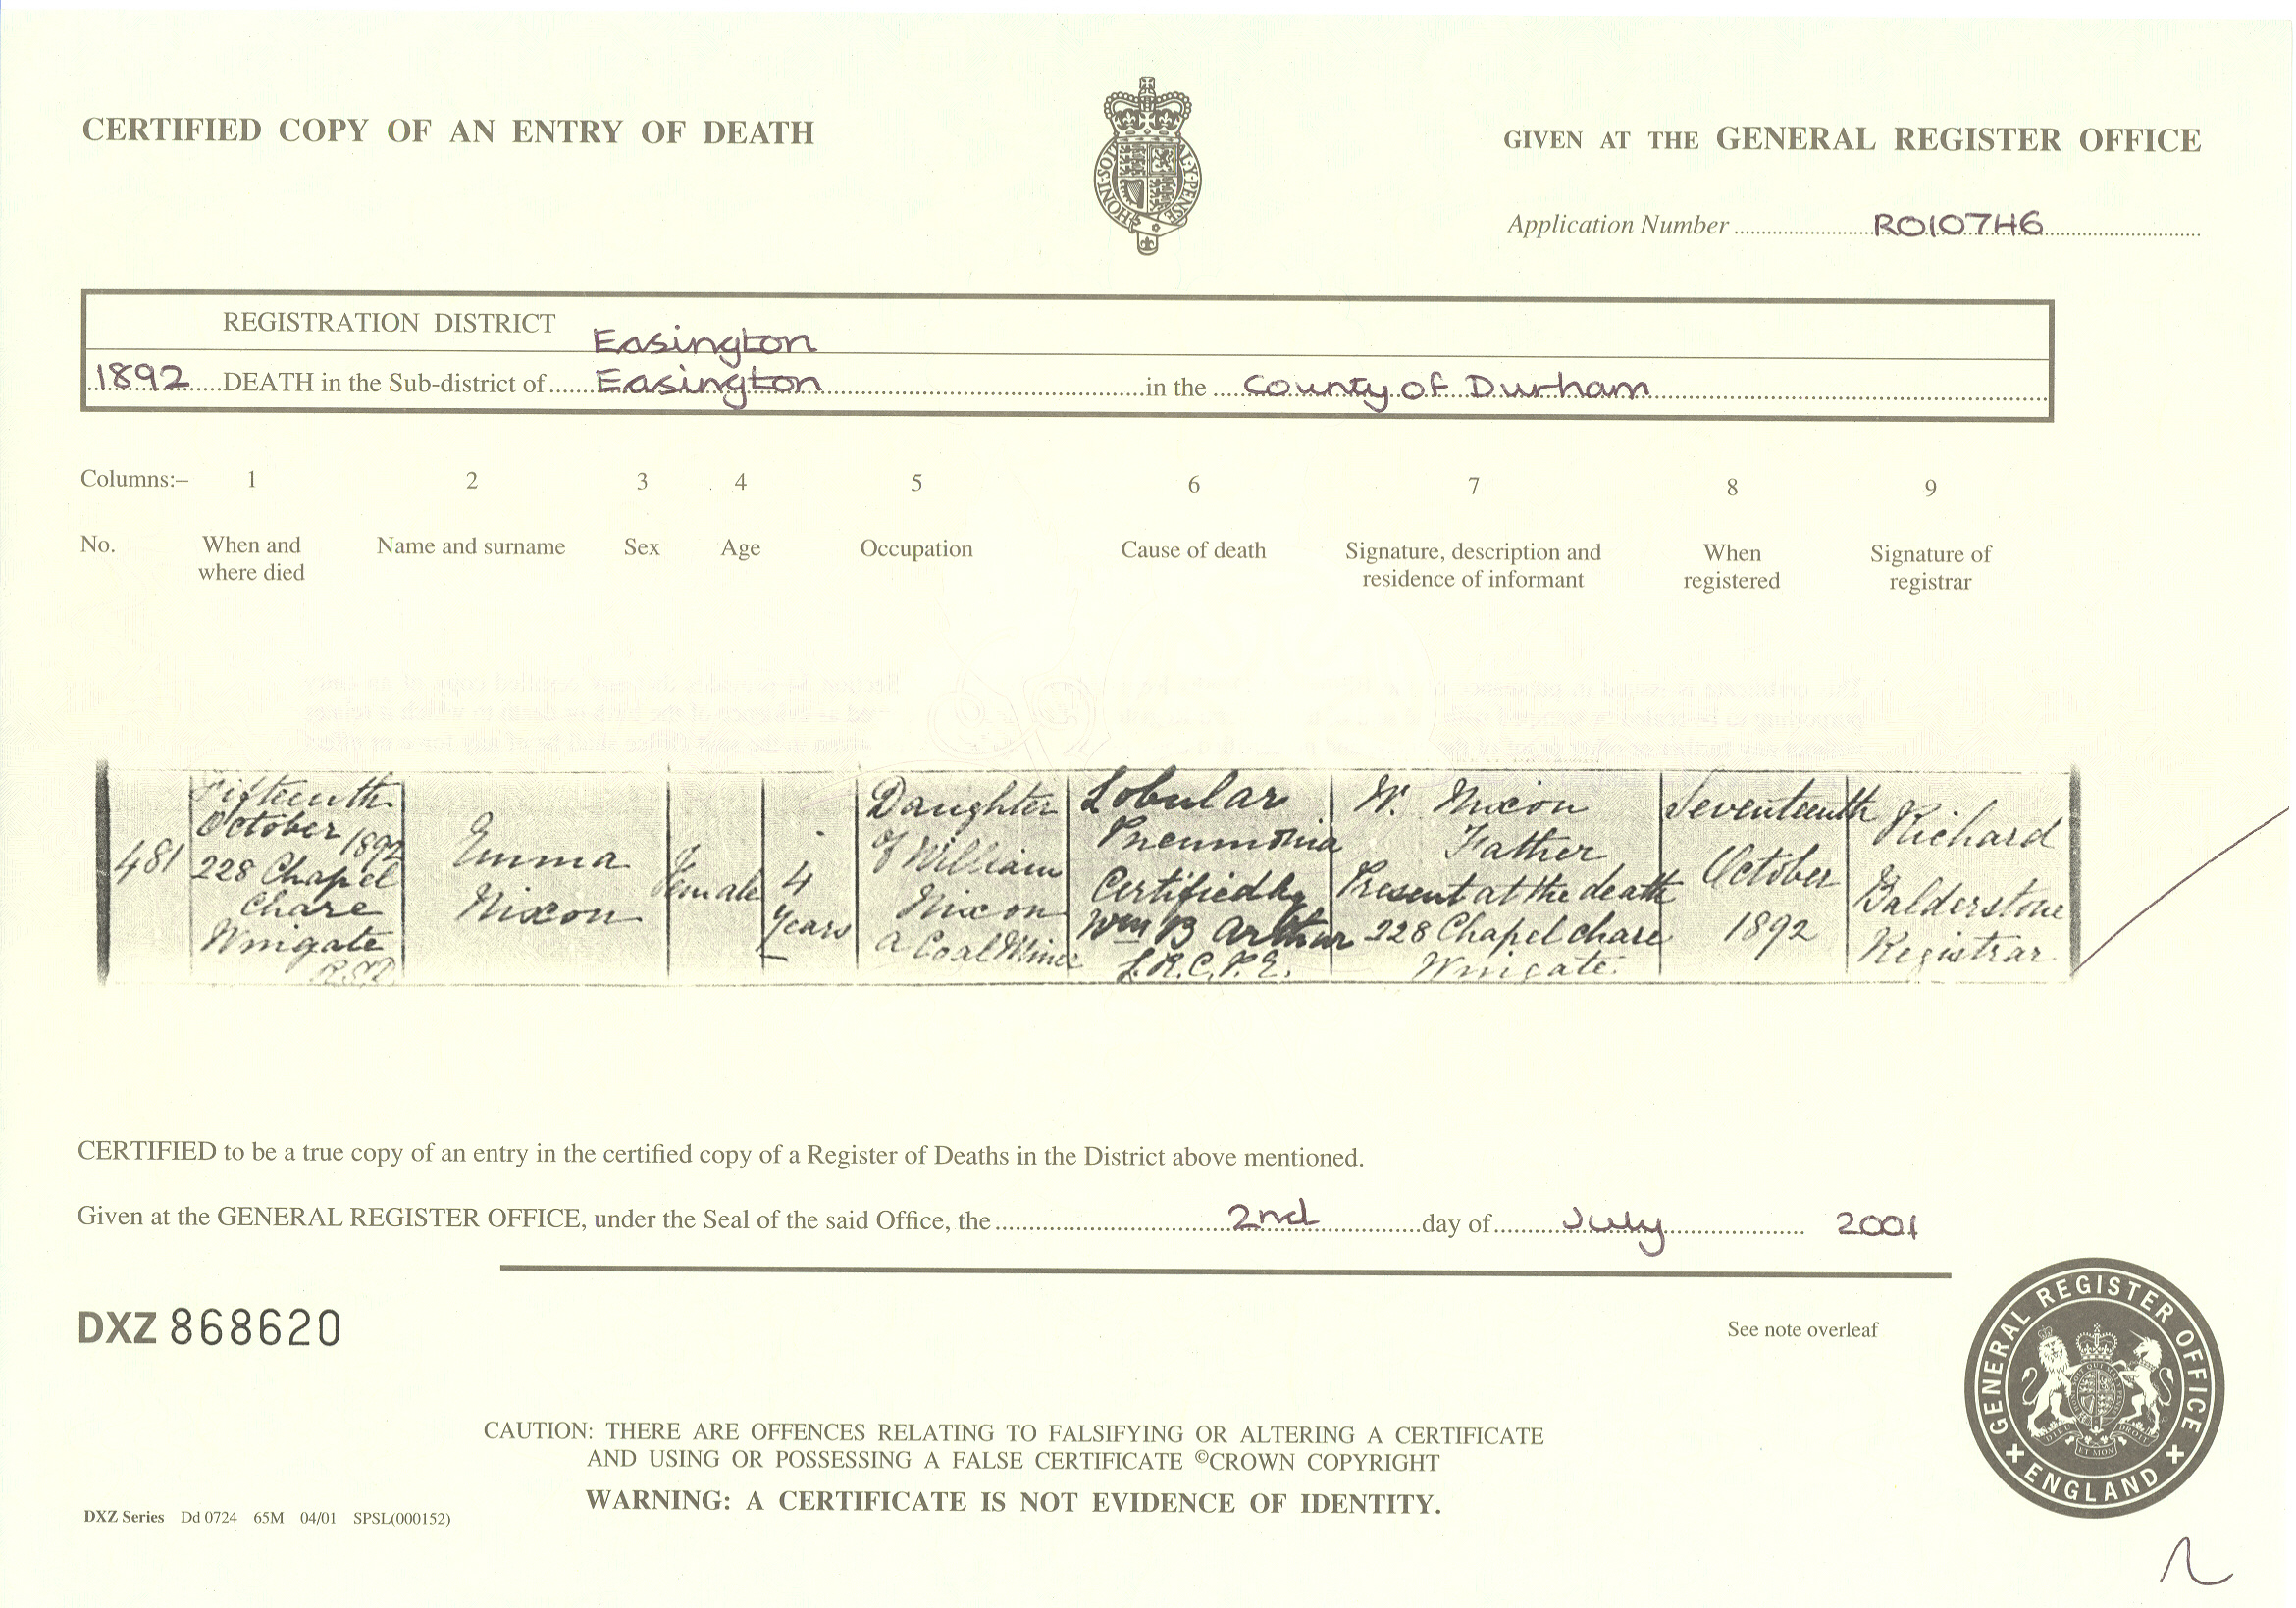 CERTIFIED COPY OF AN ENTRY OF DEATH
GIVEN AT THE GENERAL REGISTER OFFICE
HONI·SOIT Y·PENSE
Application Number R0107H6
REGISTRATION DISTRICT Easington
1892 DEATH in the Sub-district of Easington in the County of Durham
Columns:– 1 2 3 4 5 6 7 8 9
No. When and where died Name and surname Sex Age Occupation Cause of death Signature, description and residence of informant When registered Signature of registrar
481
Fifteenth
October 1892
228 Chapel
Chare
Wingate
R.S.D.
Emma
Nixon
Female
4
Years
Daughter
of William
Nixon
a Coal Miner
Lobular
Pneumonia
Certified by
Wm B Arthur
L.R.C.P.E.
W. Nixon
Father
Present at the death
228 Chapel chare
Wingate.
Seventeenth
October
1892
Richard
Balderstone
Registrar.
CERTIFIED to be a true copy of an entry in the certified copy of a Register of Deaths in the District above mentioned.
Given at the GENERAL REGISTER OFFICE, under the Seal of the said Office, the 2nd day of July 2001
DXZ 868620
See note overleaf
GENERAL REGISTER OFFICE
ENGLAND
CAUTION: THERE ARE OFFENCES RELATING TO FALSIFYING OR ALTERING A CERTIFICATE
AND USING OR POSSESSING A FALSE CERTIFICATE ©CROWN COPYRIGHT
WARNING: A CERTIFICATE IS NOT EVIDENCE OF IDENTITY.
DXZ Series Dd 0724 65M 04/01 SPSL(000152)